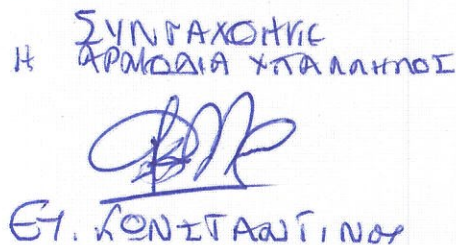 ΣΥΝΤΑΧΘΗΚΕ
Η ΑΡΜΟΔΙΑ ΥΠΑΛΛΗΛΟΣ
ΕΥ. ΚΩΝΣΤΑΝΤΙΝΟΥ